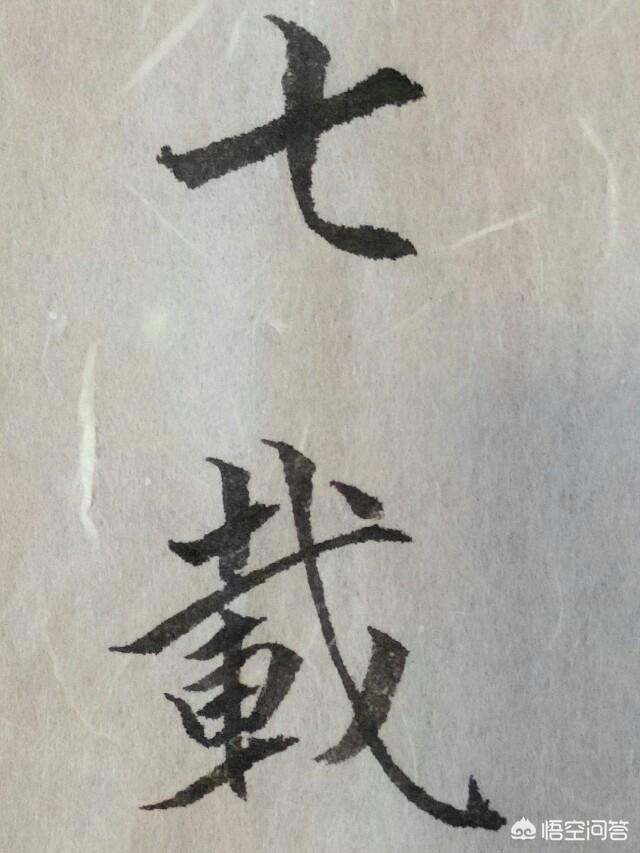 七
載
悟空问答